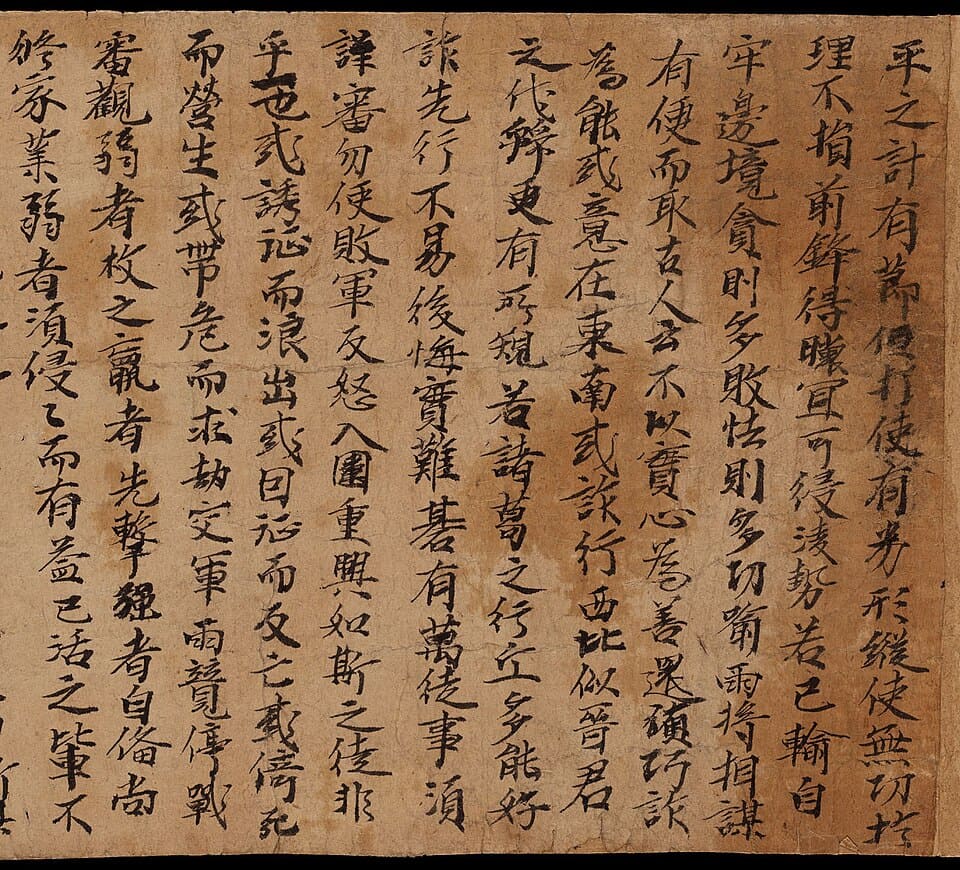 平之計有節使打使有劣形縱使無功於
理不損前鋒得壤宜可侵淩勢若已輸自
牢邊境貪則多敗怯則多功喻兩將相謀
有便而取古人云不以實心為善還須巧詐
為能或意在東南或詐行西北似晉君
之伐虢更有所規若諸葛之行丘多能好
詐先行不易後悔實難碁有萬徒事須
詳審勿使敗軍反怒入圍重興如斯之徒非
乎一也或誘征而浪出或因征而反亡或倚死
而營生或帶危而求劫交軍兩競停戰
審觀弱者枚之羸者先擊強者自俻尚
修家業弱者須侵〻而有益已活之輩不